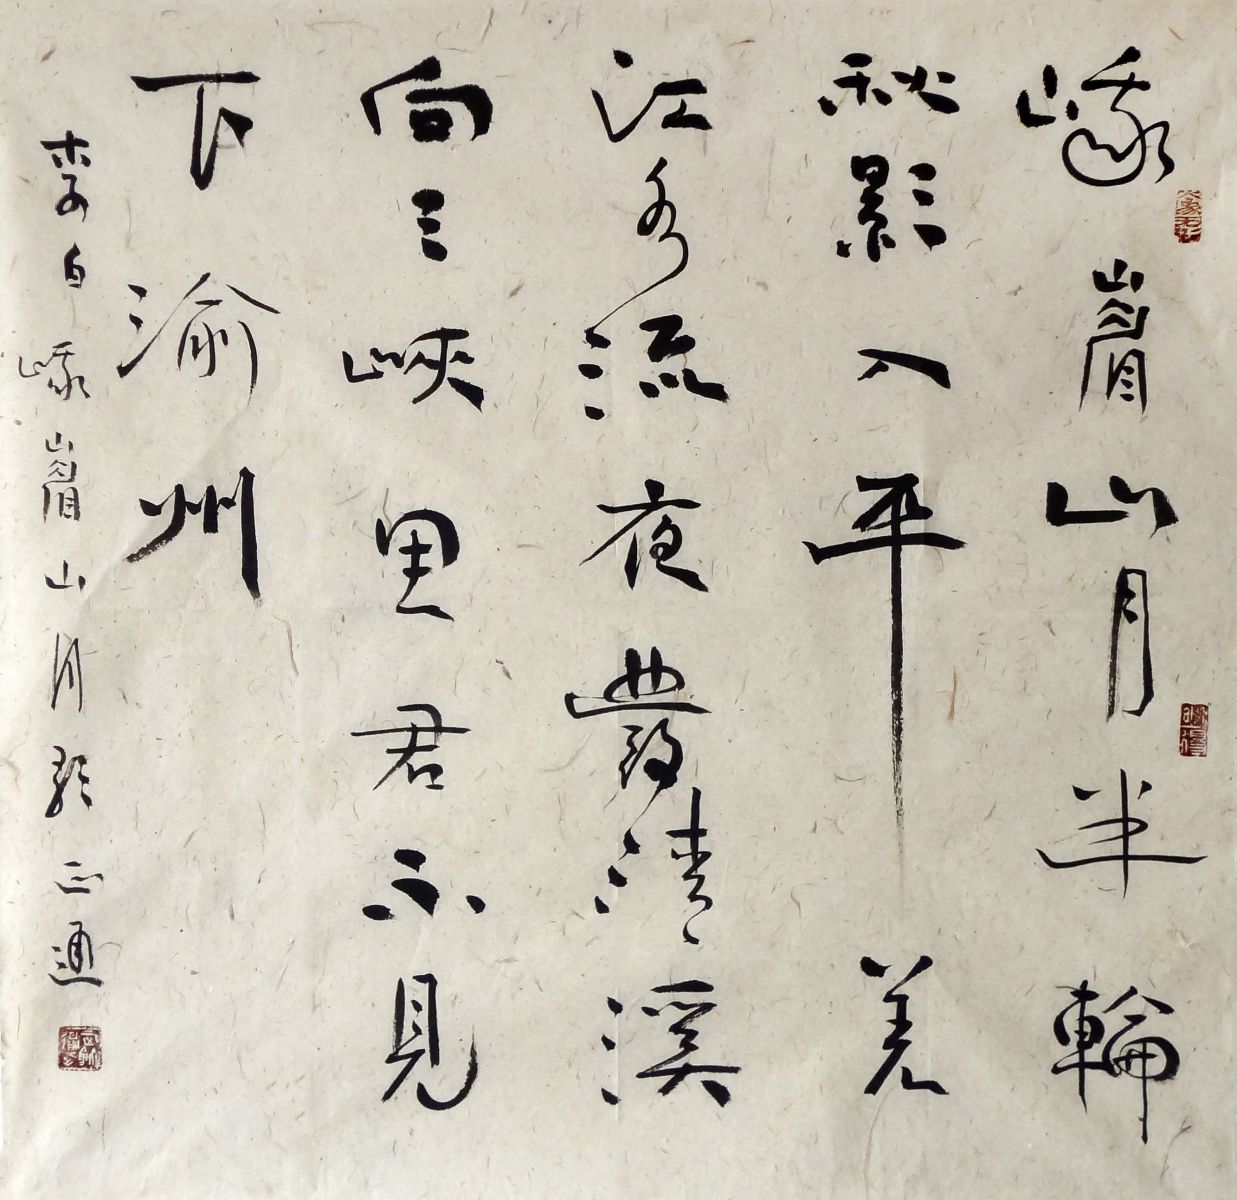 峨嵋山月半輪
秋影入平羌
江水流夜發清溪
向三峽思君不見
下渝州
李白峨嵋山月歌正通